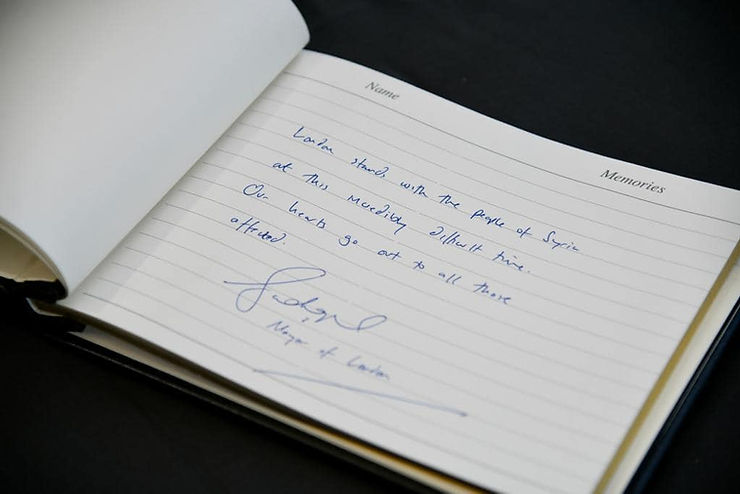 Name
Memories
London stands with the people of Syria
at this incredibly difficult time.
Our hearts go out to all those
affected.
Mayor of London